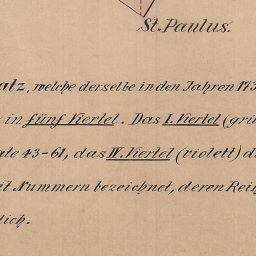 St. Paulus.
atz, welche derselbe in den Jahren 173
in fünf Viertel. Das I. Viertel (grü
ale 43-61, das IV. Viertel (violett) d
it Nummern bezeichnet, deren Reih
lich.